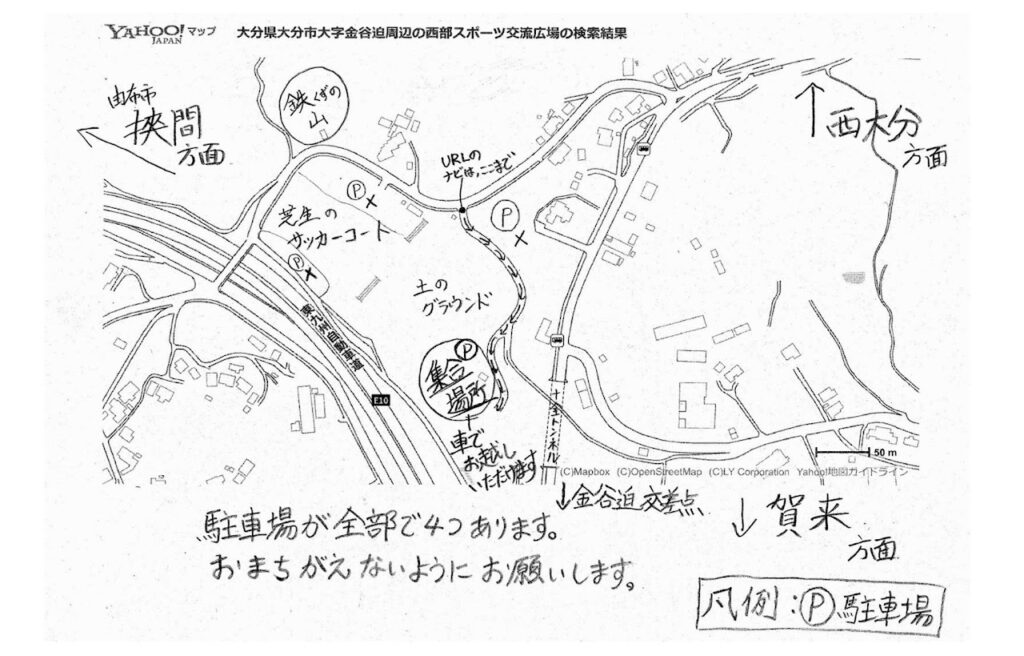 YAHOO! JAPAN マップ
大分県大分市大字金谷迫周辺の西部スポーツ交流広場の検索結果
由布市
挾間
方面
鉄くずの
山
URLの
ナビは、ここまで
↑西大分
方面
P ×
P ×
芝生の
サッカーコート
P ×
土の
グラウンド
東大分自動車道
E10
P
集合
場所
車で
お越し
いただけます
十全トンネル
50 m
(C)Mapbox (C)OpenStreetMap (C)LY Corporation Yahoo!地図ガイドライン
↓金谷迫交差点
↓賀来
方面
駐車場が全部で4つあります。
おまちがえないようにお願いします。
凡例:P駐車場